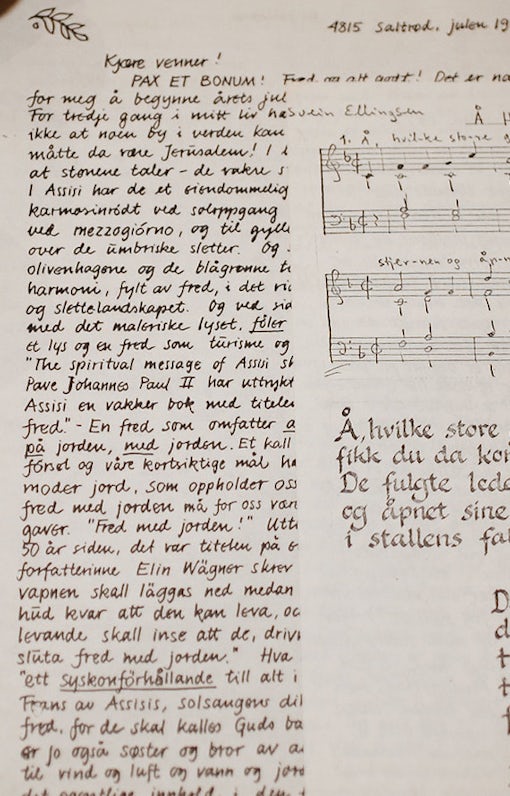 4815 Saltrød, julen 19
Kjære venner!
PAX ET BONUM! Fred og alt godt! Det er na
for meg å begynne årets jul
For tredje gang i mitt liv ha
ikke at noen by i verden kan
måtte da være Jerusalem! I
at stenene taler - de vakre s
I Assisi har de et eiendommelig
karmosinrødt ved soloppgang
ved mezzogiórno, og til gylle
over de umbriske sletter. Og
olivenhagene og de blågrønne t
harmoni, fylt av fred, i det ri
og slettelandskapet. Og ved si
med det maleriske lyset, føler
et lys og en fred som turisme og
"The spiritual message of Assisi sh
Pave Johannes Paul II har uttrykt
Assisi en vakker bok med titele
fred." - En fred som omfatter a
på jorden, med jorden. Et kall
førsel og våre kortsiktige mål ha
moder jord, som oppholder oss
fred med jorden må for oss vær
gaver. "Fred med jorden!" Utt
50 år siden, det var titelen på e
forfatterinne Elin Wägner skrev
vapnen skall läggas ned medan
hud kvar att den kan leva, oc
levande skall inse att de, driv
sluta fred med jorden." Hva
"ett syskonförhållande till alt i
Frans av Assisis, solsangens dil
fred, for de skal kalles Guds ba
er jo også søster og bror av a
til vind og luft og vann og jord
innhold i den
Svein Ellingsen
Å
1. Å, hvil-ke sto-re
stjer-nen og åp-n
Å, hvilke store
fikk du da ko
De fulgte lede
og åpnet sine
i stallens fa
D
d
t
t